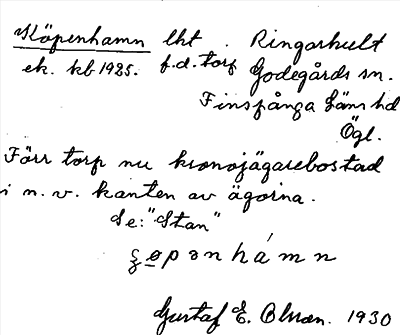 Köpenhamn lht. Ringarhult
ek. kb 1925. f.d. torp Godegårds sn.
Finspånga läns hd
Ögl.
Förr torp nu kronojägarebostad
i n.v. kanten av ägorna.
Se: "Stan"
Gustaf E. 1930